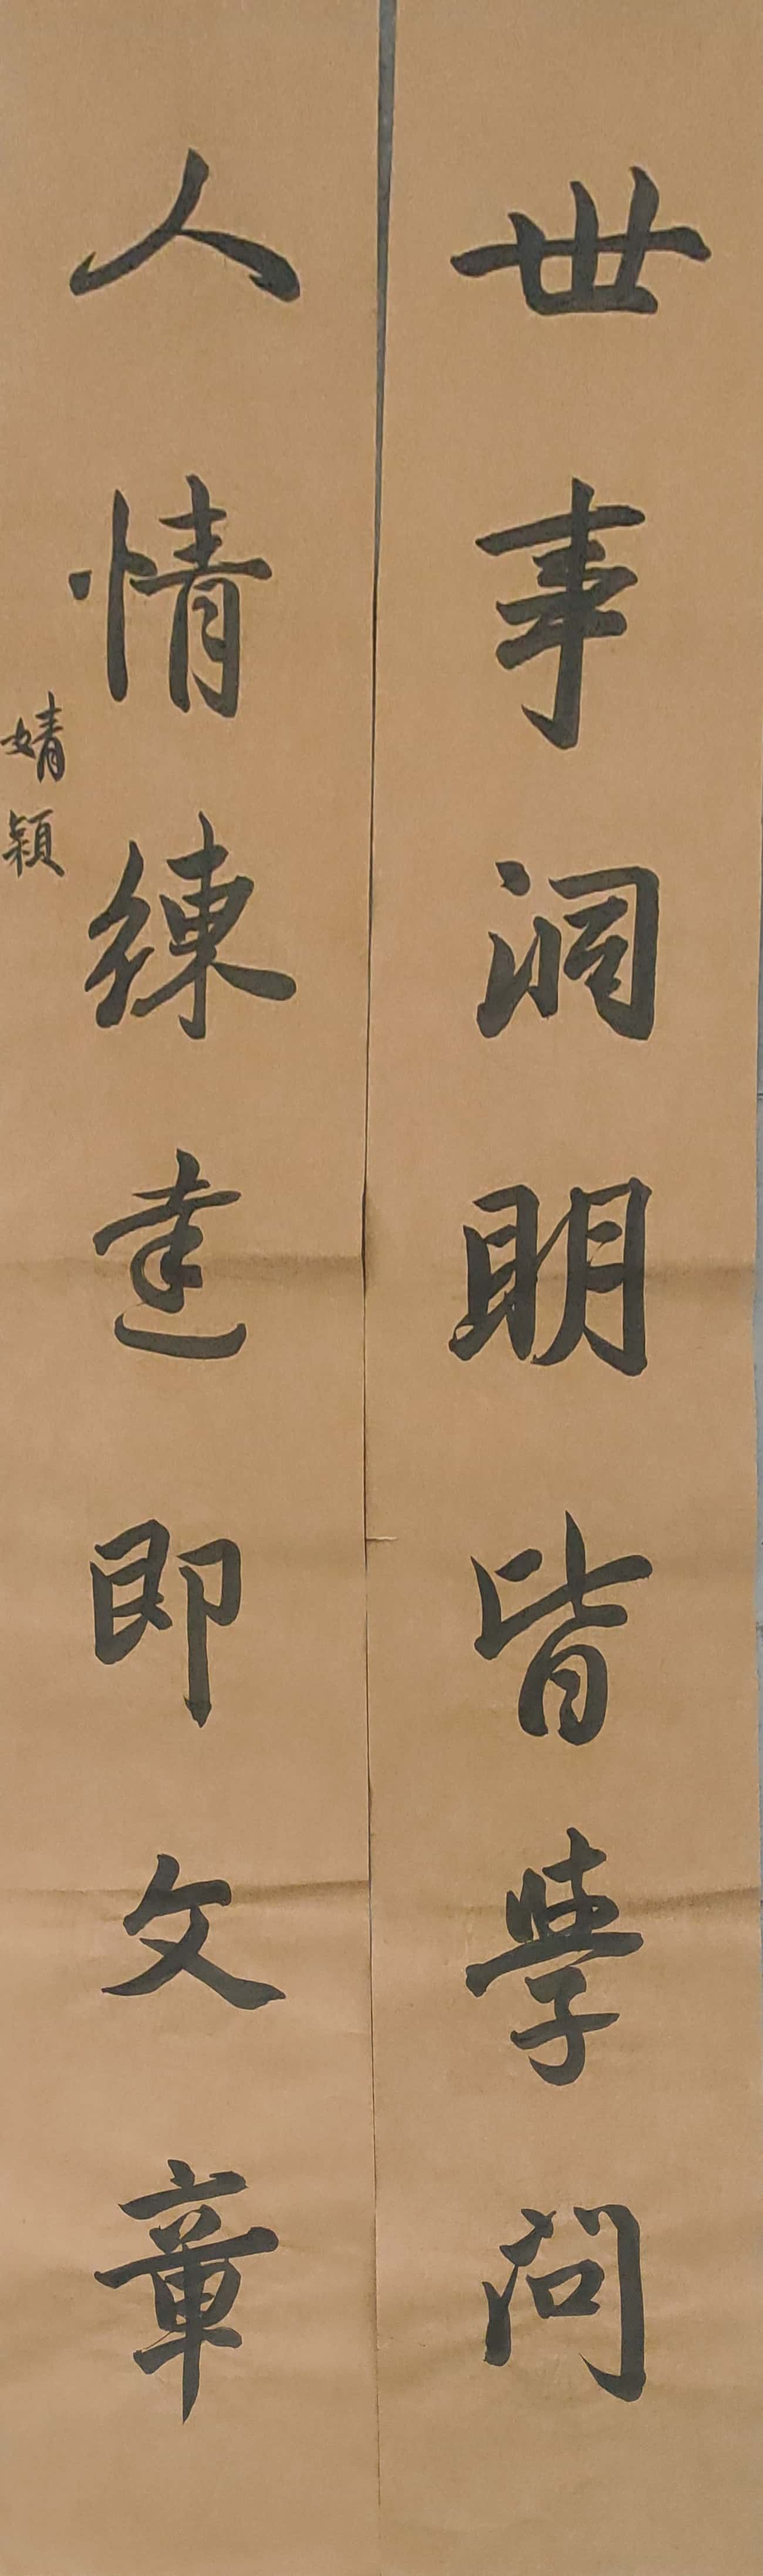 世事洞明皆學問
人情練達即文章
婧穎